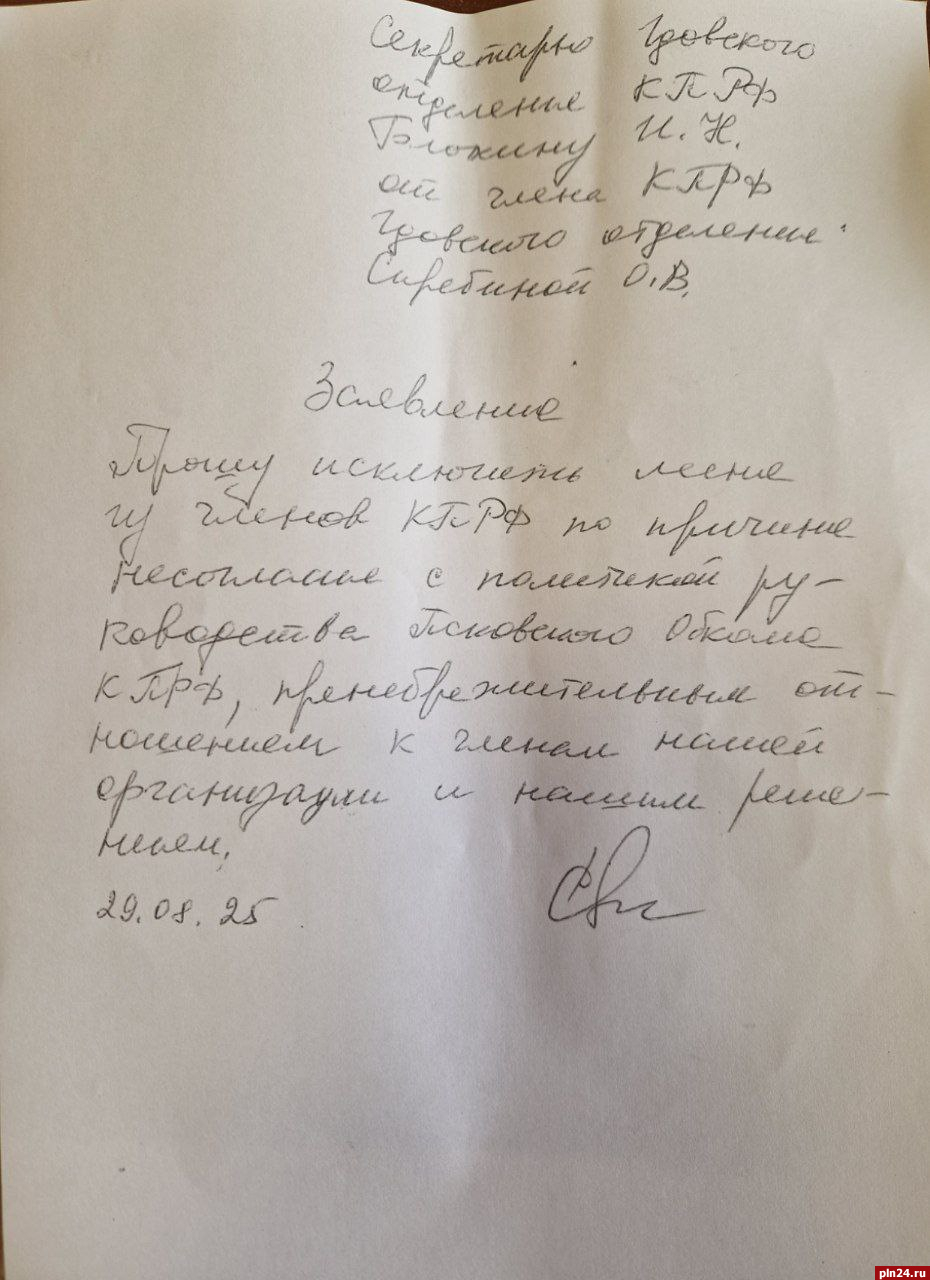 Секретарю Гдовского
отделение КПРФ
Блохину И.Н.
от члена КПРФ
Гдовского отделение
Скребиной О.В.
Заявление
Прошу исключить меня
из членов КПРФ по причине
несогласие с политикой ру-
ководства Псковского Обкома
КПРФ, пренебрежительным от-
ношением к членам нашей
организации и нашим реше-
нием.
29.08.25
pln24.ru